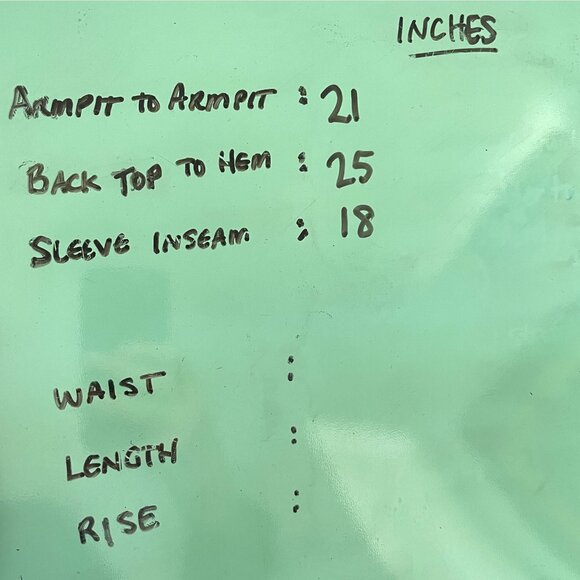 INCHES
ARMPIT TO ARMPIT : 21
BACK TOP TO HEM : 25
SLEEVE INSEAM : 18
WAIST :
LENGTH :
RISE :